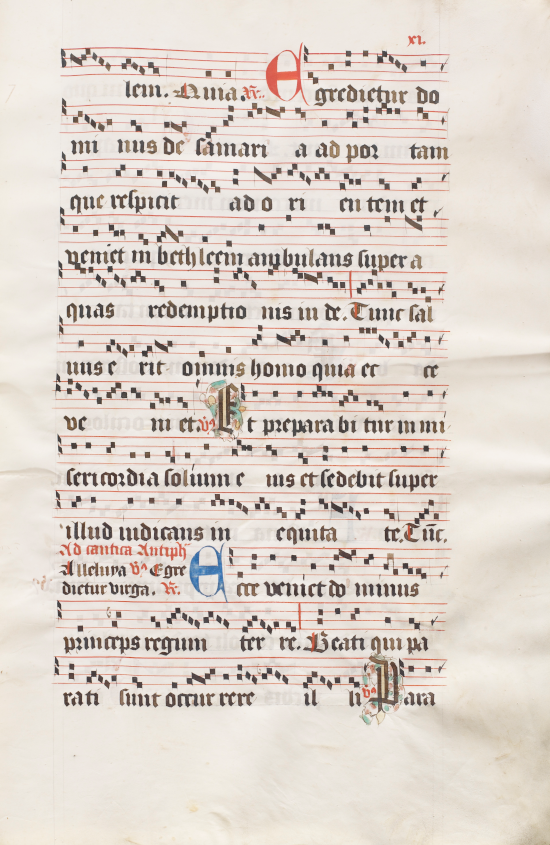 xi.
lem. Auia. R. Egredietur do
mi nus de samari a ad por tam
que respicit ad ri en tem et
veniet in bethleem ambulans super a
quas redemptio nis iu de. Tunc sal
uus e rit omnis homo quia ec ce
ve ni et. V. Et prepara bi tur in mi
sericordia solium e ius et sedebit super
illud iudicans in equita te. Tūc.
Ad cantica Antiph
Alleluya Vs Egre
dietur virga. R. Ecce veniet do minus
princeps regum ter re. Beati qui pa
rati sunt occur rere il li Vs Para